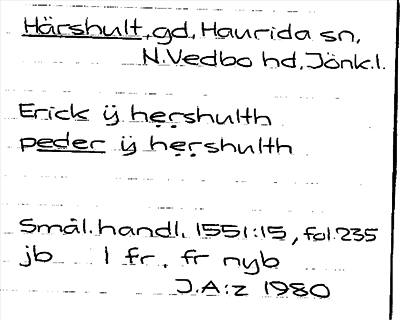 Härshult, gd, Haurida sn,
N.Vedbo hd, Jönk.l.
Erick ÿ hẹrshulth
peder ÿ hẹrshulth
Smål.handl. 1551:15, fol.235
jb 1 fr. fr nyb
J.A:z 1980